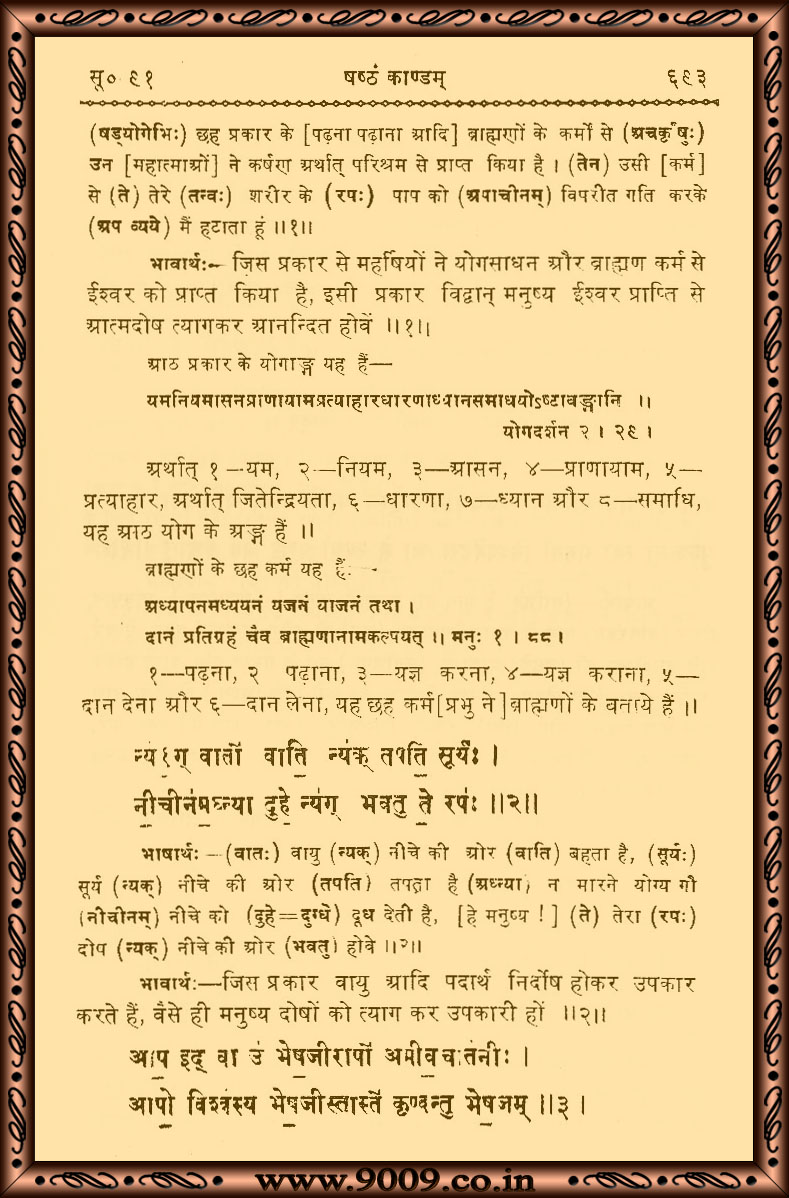 सू० ९१ षष्ठं काण्डम् ६९३
(षड्योगेभिः) छह प्रकार के [पढ़ना पढ़ाना आदि] ब्राह्मणों के कर्मों से (अचर्कृषुः)
उन [महात्माओं] ने कर्षण अर्थात् परिश्रम से प्राप्त किया है । (तेन) उसी [कर्म]
से (ते) तेरे (तन्वः) शरीर के (रपः) पाप को (अपाचीनम्) विपरीत गति करके
(अप व्यये) मैं हटाता हूं ॥१॥
भावार्थः– जिस प्रकार से महर्षियों ने योगसाधन और ब्राह्मण कर्म से
ईश्वर को प्राप्त किया है, इसी प्रकार विद्वान् मनुष्य ईश्वर प्राप्ति से
आत्मदोष त्यागकर आनन्दित होवें ॥१॥
आठ प्रकार के योगाङ्ग यह हैं—
यमनियमासनप्राणायामप्रत्याहारधारणाध्यानसमाधयोऽष्टावङ्गानि ॥
योगदर्शन २ । २९ ।
अर्थात् १—यम, २—नियम, ३—आसन, ४—प्राणायाम, ५—
प्रत्याहार, अर्थात् जितेन्द्रियता, ६—धारणा, ७—ध्यान और ८—समाधि,
यह आठ योग के अङ्ग हैं ॥
ब्राह्मणों के छह कर्म यह हैं: -
अध्यापनमध्ययनं यजनं याजनं तथा ।
दानं प्रतिग्रहं चैव ब्राह्मणानामकल्पयत् ॥ मनुः १ । ८८ ।
१—पढ़ना, २ पढ़ाना, ३—यज्ञ करना, ४—यज्ञ कराना, ५—
दान देना और ६—दान लेना, यह छह कर्म [प्रभु ने] ब्राह्मणों के बताये हैं ॥
न्य॑१ग् वातो॑ वाति॒ न्य॑क् तपति॒ सूर्यः॑ ।
नी॒चीन॑म॒घ्न्या दु॒हे न्य॑ग् भवतु ते॒ रपः॑ ॥२॥
भाषार्थः –(वातः) वायु (न्यक्) नीचे की ओर (वाति) बहता है, (सूर्यः)
सूर्य (न्यक्) नीचे की ओर (तपति) तपता है (अघ्न्या) न मारने योग्य गौ
(नीचीनम्) नीचे को (दुहे=दुग्धे) दूध देती है, [हे मनुष्य !] (ते) तेरा (रपः)
दोष (न्यक्) नीचे की ओर (भवतु) होवे ॥२॥
भावार्थः—जिस प्रकार वायु आदि पदार्थ निर्दोष होकर उपकार
करते हैं, वैसे ही मनुष्य दोषों को त्याग कर उपकारी हों ॥२॥
आप॒ इद् वा उ॑ भेष॒जीरापो॑ अमीव॒चात॑नीः ।
आपो॒ विश्व॑स्य भेष॒जीस्तास्ते॑ कृण्वन्तु भेष॒जम् ॥३।
www.9009.co.in